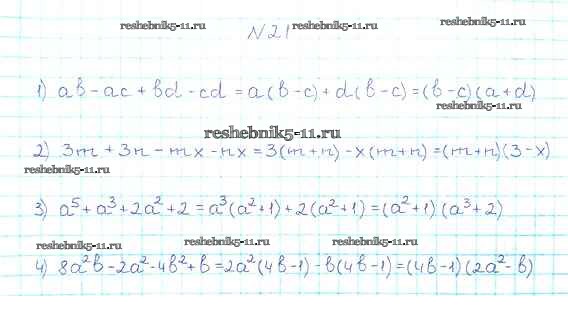 reshebnik5-11.ru reshebnik5-11.ru reshebnik5-11.ru
N 21
1) ab - ac + bd - cd = a(b - c) + d(b - c) = (b - c)(a + d)
reshebnik5-11.ru
reshebnik5-11.ru
2) 3m + 3n - mx - nx = 3(m + n) - x(m + n) = (m + n)(3 - x)
reshebnik5-11.ru
3) a⁵ + a³ + 2a² + 2 = a³(a² + 1) + 2(a² + 1) = (a² + 1)(a³ + 2)
reshebnik5-11.ru reshebnik5-11.ru reshebnik5-11.ru
4) 8a²b - 2a² - 4b² + b = 2a²(4b - 1) - b(4b - 1) = (4b - 1)(2a² - b)